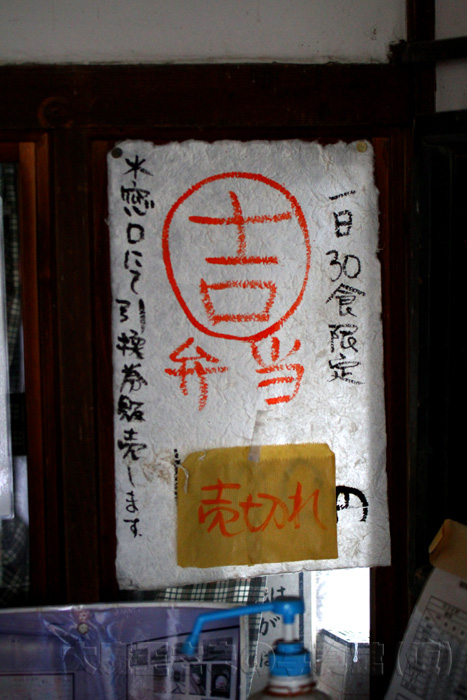 一日30食限定
吉
弁当
※窓口にて引換券販売します。
売切れ
の